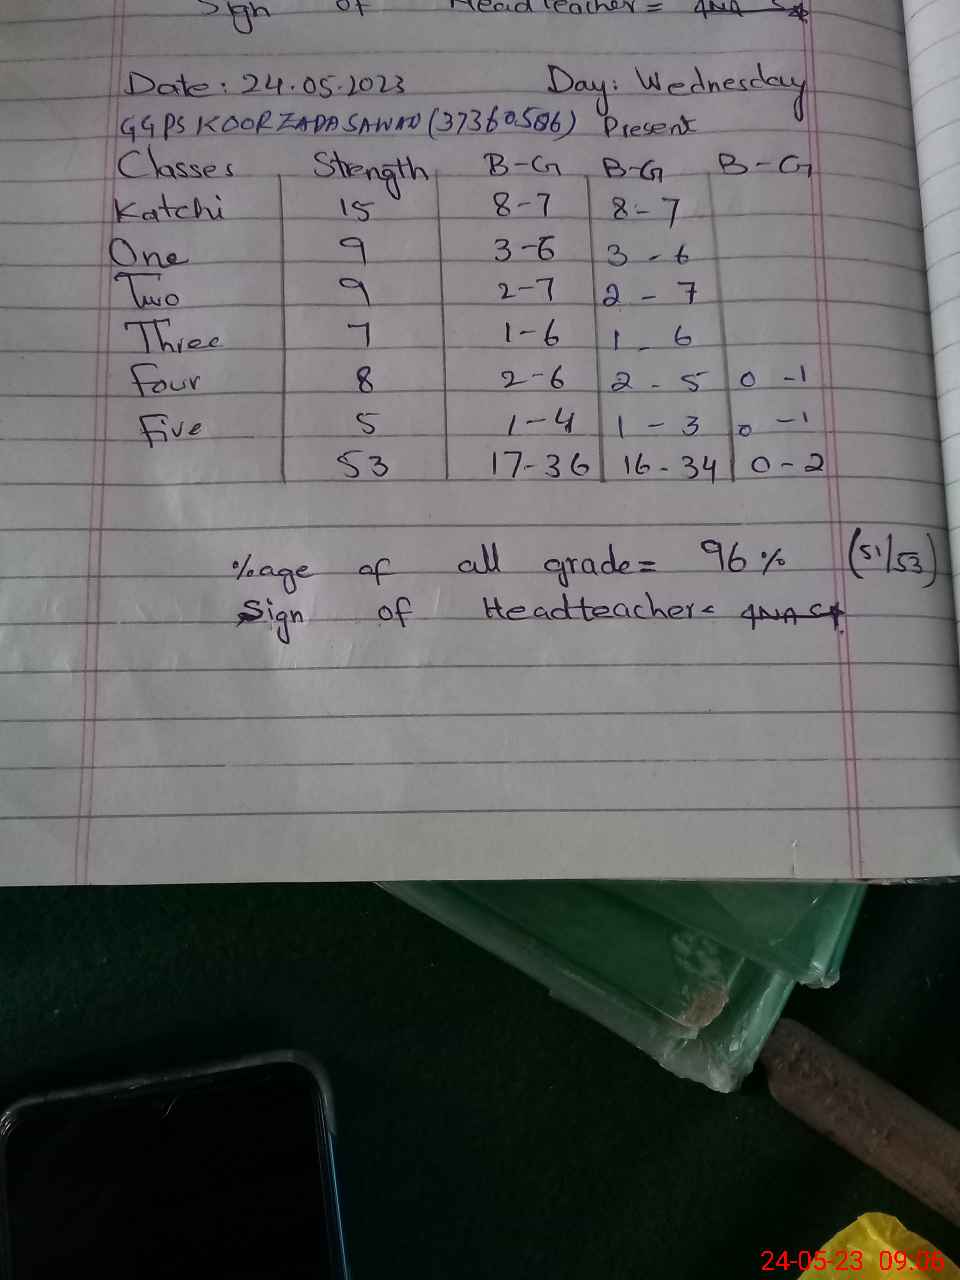 Sign of Headteacher=
Date: 24.05.2023 Day: Wednesday
GGPS KOORZADA SAWAD (37360586) Present
Classes Strength B-G B-G B-G
Katchi 15 8-7 8-7
One 9 3-6 3-6
Two 9 2-7 2-7
Three 7 1-6 1-6
Four 8 2-6 2-5 0-1
Five 5 1-4 1-3 0-1
53 17-36 16-34 0-2
%age of all grade= 96% (51/53)
Sign of Headteacher=
24-05-23 09:06